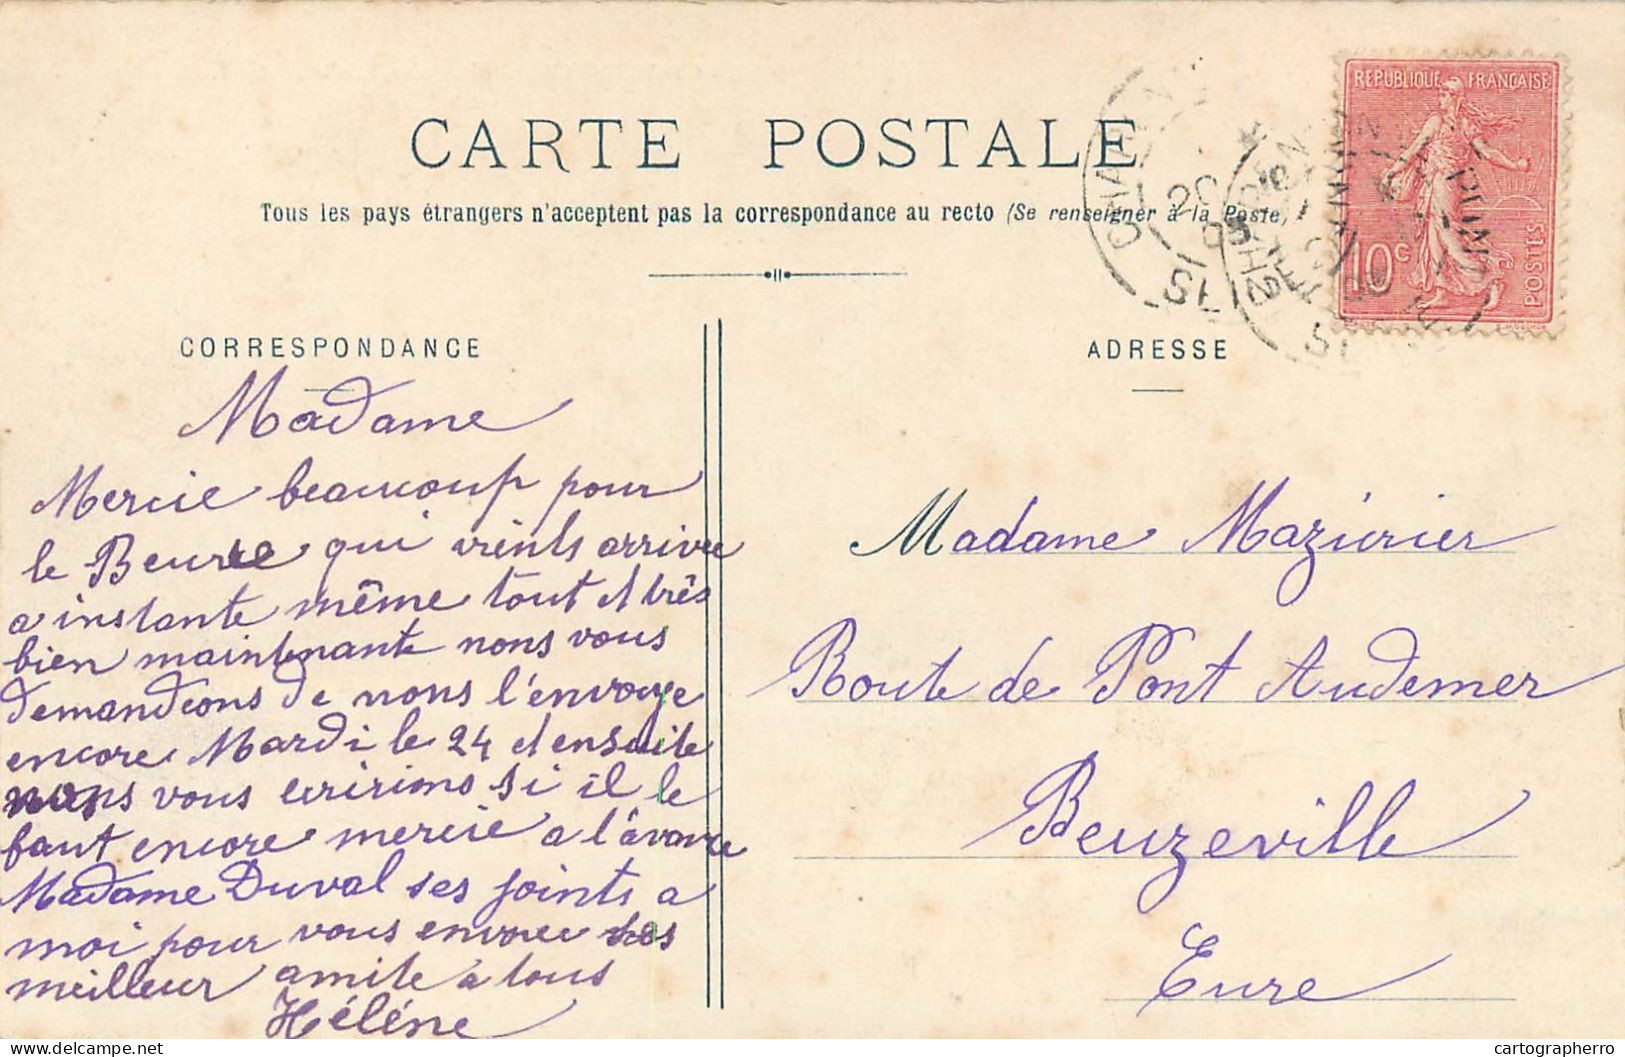 CARTE POSTALE
Tous les pays étrangers n'acceptent pas la correspondance au recto (Se renseigner à la Poste)
REPUBLIQUE FRANÇAISE
10c
POSTES
CORRESPONDANCE
Madame
Mercie beaucoup pour
le Beurre qui vients arrivée
a instante même tout et très
bien maintenante nous vous
demandions de nous l'envoye
encore Mardi le 24 et ensuite
nous vous ecririons si il le
faut encore mercie a l'avance
Madame Duval ses joints a
moi pour vous envoiee nos
meilleur amite a tous
Hélène
ADRESSE
Madame Maziérier
Route de Pont Audemer
Beuzeville
Eure
cartographerro